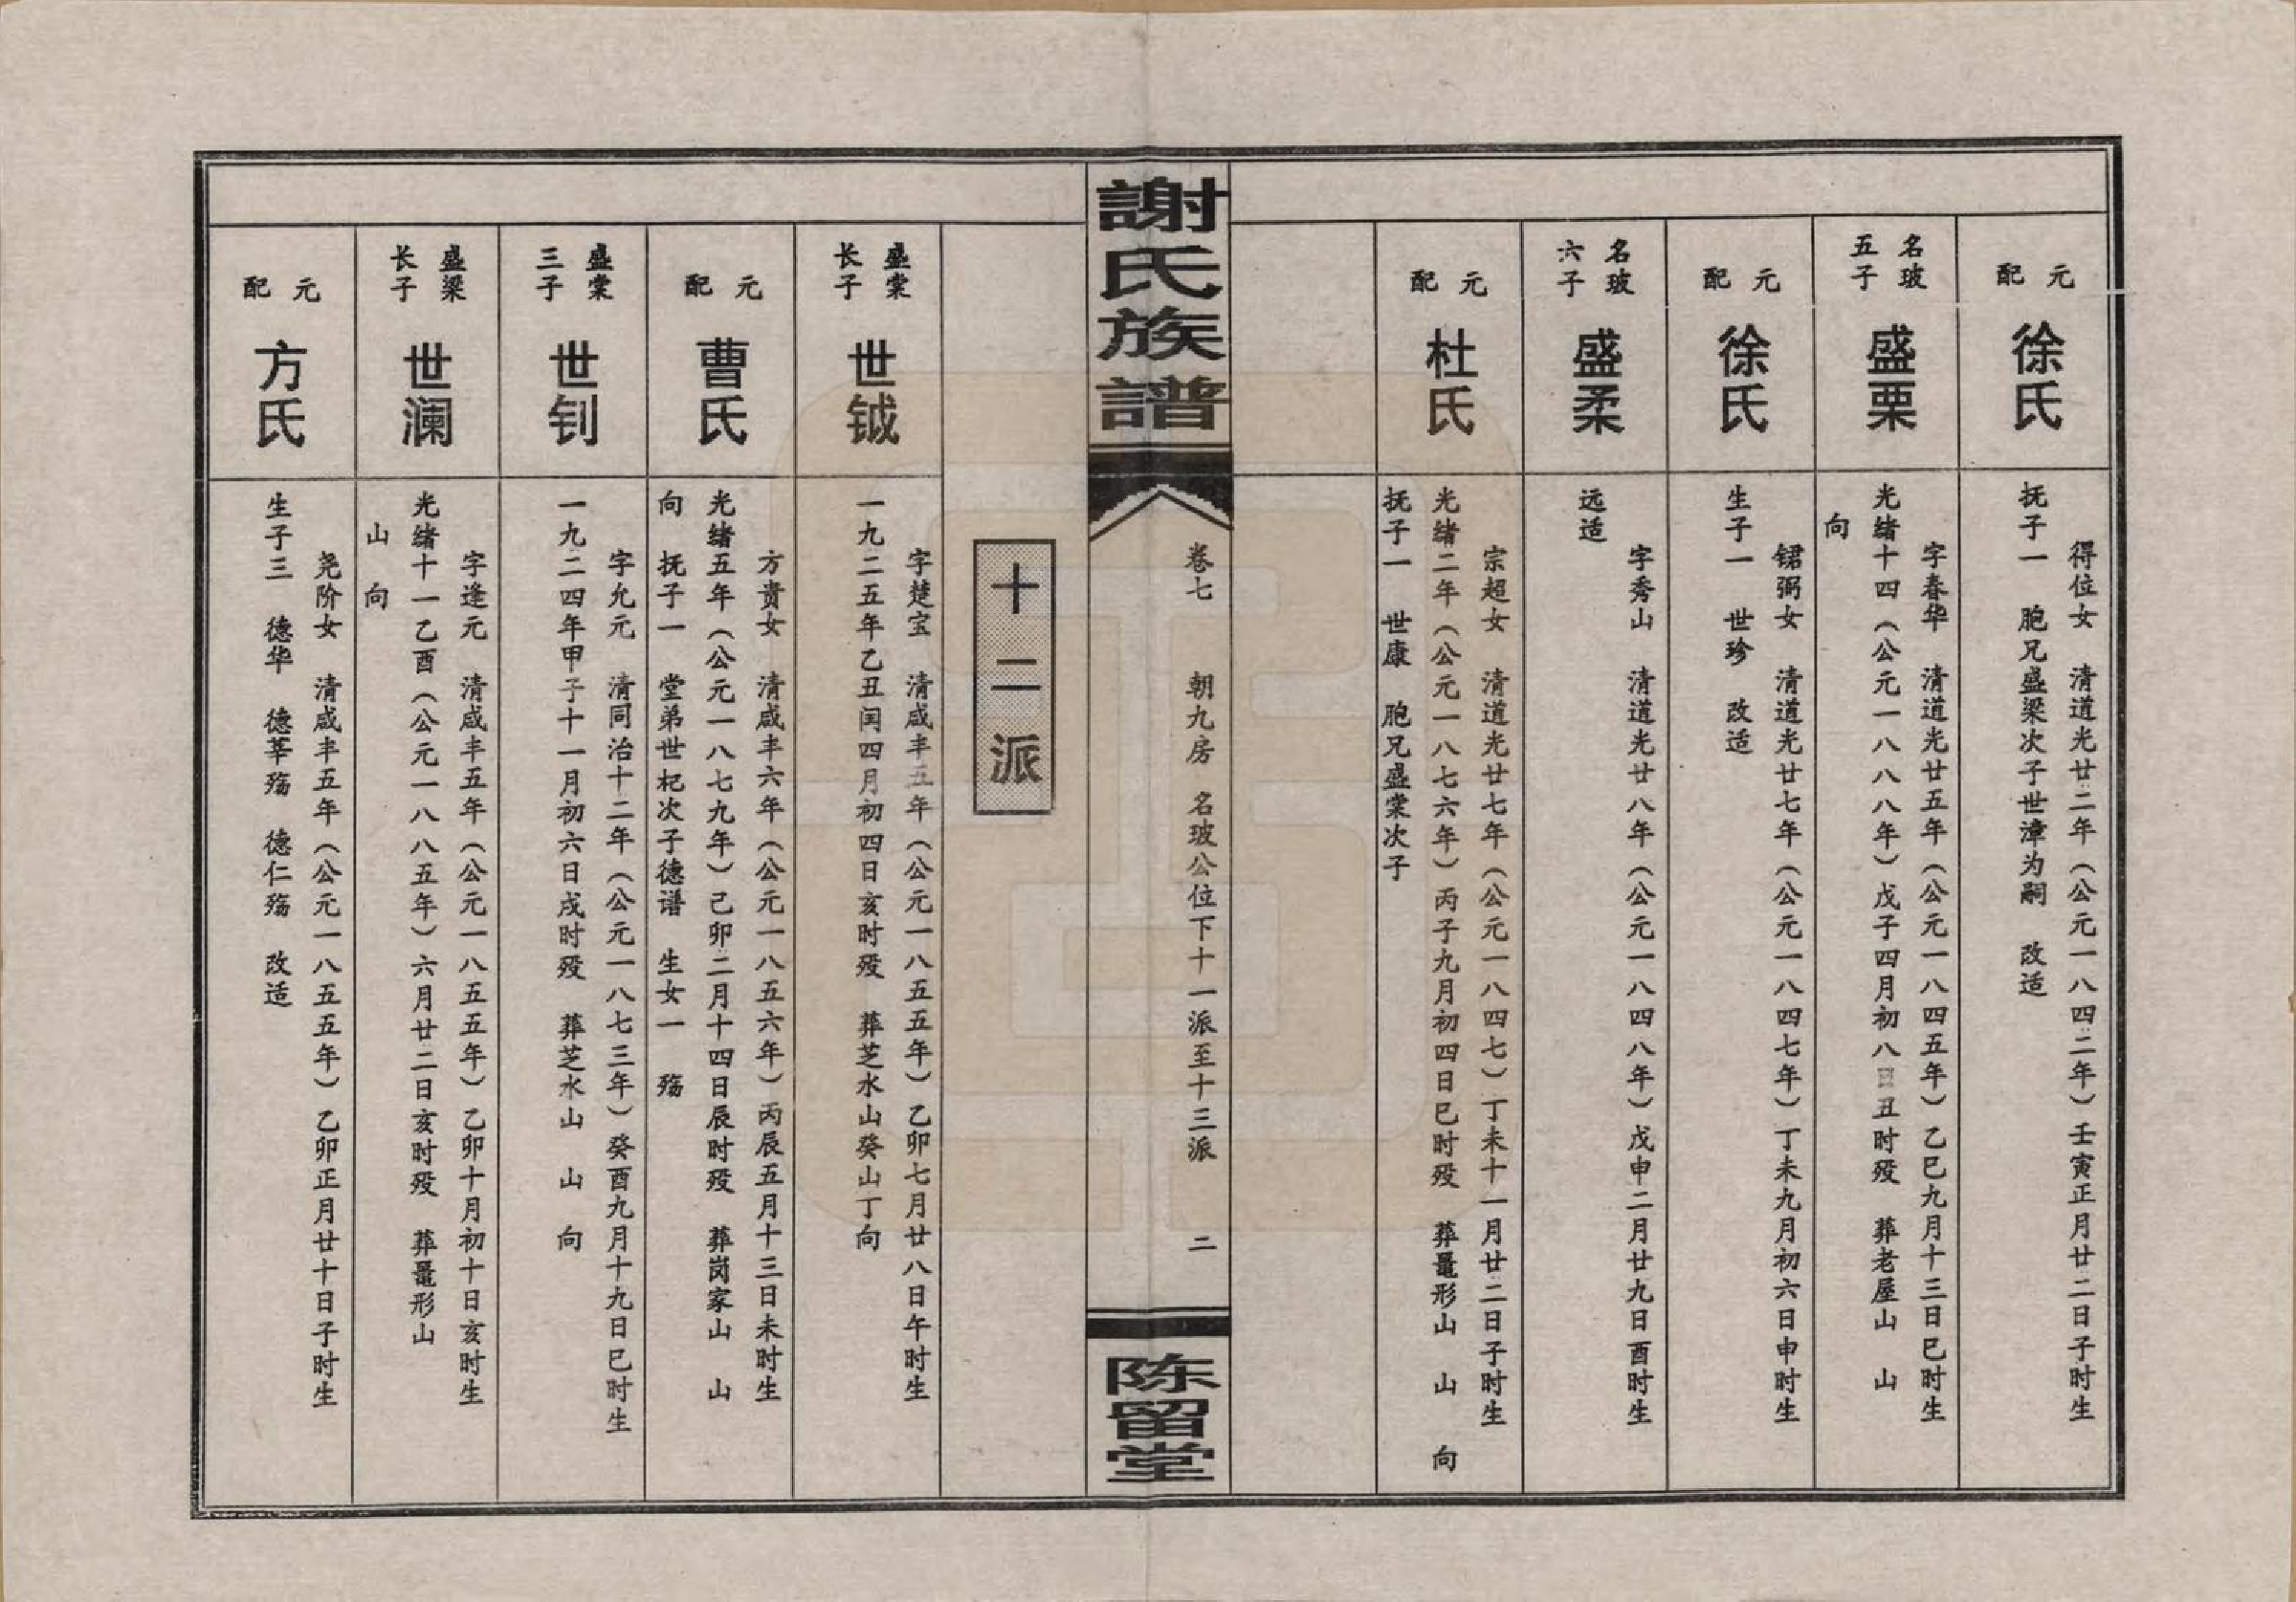 元配
徐氏
得位女　清道光廿二年（公元一八四二年）壬寅正月廿二日子时生
抚子一　胞兄盛梁次子世漳为嗣　改适
名玻五子
盛栗
字春华　清道光廿五年（公元一八四五年）乙巳九月十三日巳时生
光绪十四（公元一八八八年）戊子四月初八日丑时殁　葬老屋山　山
向
元配
徐氏
锯弼女　清道光廿七年（公元一八四七年）丁未九月初六日申时生
生子一　世珍　改适
名玻六子
盛柔
字秀山　清道光廿八年（公元一八四八年）戊申二月廿九日酉时生
远适
元配
杜氏
宗超女　清道光廿七年（公元一八四七）丁未十一月廿二日子时生
光绪二年（公元一八七六年）丙子九月初四日巳时殁　葬鼍形山　山　向
抚子一　世康　胞兄盛棠次子
謝氏族譜
卷七　朝九房　名玻公位下十一派至十三派　二
陈留堂
十二派
盛棠长子
世钺
字楚宝　清咸丰五年（公元一八五五年）乙卯七月廿八日午时生
一九二五年乙丑闰四月初四日亥时殁　葬芝水山癸山丁向
元配
曹氏
方贵女　清咸丰六年（公元一八五六年）丙辰五月十三日未时生
光绪五年（公元一八七九年）己卯二月十四日辰时殁　葬岗家山　山
向　抚子一　堂弟世杞次子德谱　生女一　殇
盛棠三子
世钊
字允元　清同治十二年（公元一八七三年）癸酉九月十九日巳时生
一九二四年甲子十一月初六日戌时殁　葬芝水山　山　向
盛梁长子
世澜
字逢元　清咸丰五年（公元一八五五年）乙卯十月初十日亥时生
光绪十一乙酉（公元一八八五年）六月廿二日亥时殁　葬鼍形山
山　向
元配
方氏
尧阶女　清咸丰五年（公元一八五五年）乙卯正月廿十日子时生
生子三　德华　德莘殇　德仁殇　改适